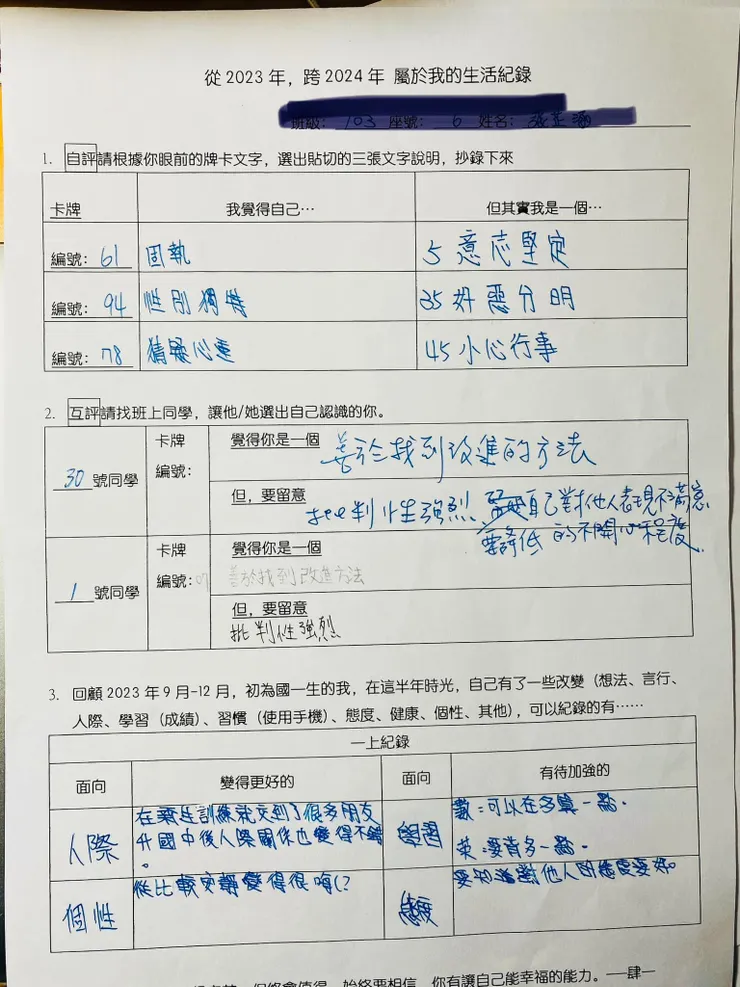 從 2023 年，跨 2024 年 屬於我的生活紀錄
班級： 103 座號： 6 姓名：
1. 自評請根據你眼前的牌卡文字，選出貼切的三張文字說明，抄錄下來
卡牌 我覺得自己… 但其實我是一個…
編號： 61 固執 5 意志堅定
編號： 94 性別獨特 35 好惡分明
編號： 78 猜疑心重 45 小心行事
2. 互評請找班上同學，讓他/她選出自己認識的你。
30 號同學 卡牌 編號： 覺得你是一個 善於找到改進的方法
但，要留意 批判性強烈 自己對他人表現不滿意
要降低 的不開心程度
1 號同學 卡牌 編號： 覺得你是一個 善於找到改進方法
但，要留意
批判性強烈
3. 回顧 2023 年 9 月-12 月，初為國一生的我，在這半年時光，自己有了一些改變（想法、言行、
人際、學習（成績）、習慣（使用手機）、態度、健康、個性、其他），可以紀錄的有……
一上紀錄
面向 變得更好的 面向 有待加強的
人際 在新生訓練就交到了很多朋友
升國中後人際關係也變得不錯
。
學習 數：可以在多算一點。
英：要背多一點。
個性 從比較安靜變得很嗨(?
態度 要知道對他人的態度要好。
始終要相信，你有讓自己能幸福的能力。——肆一